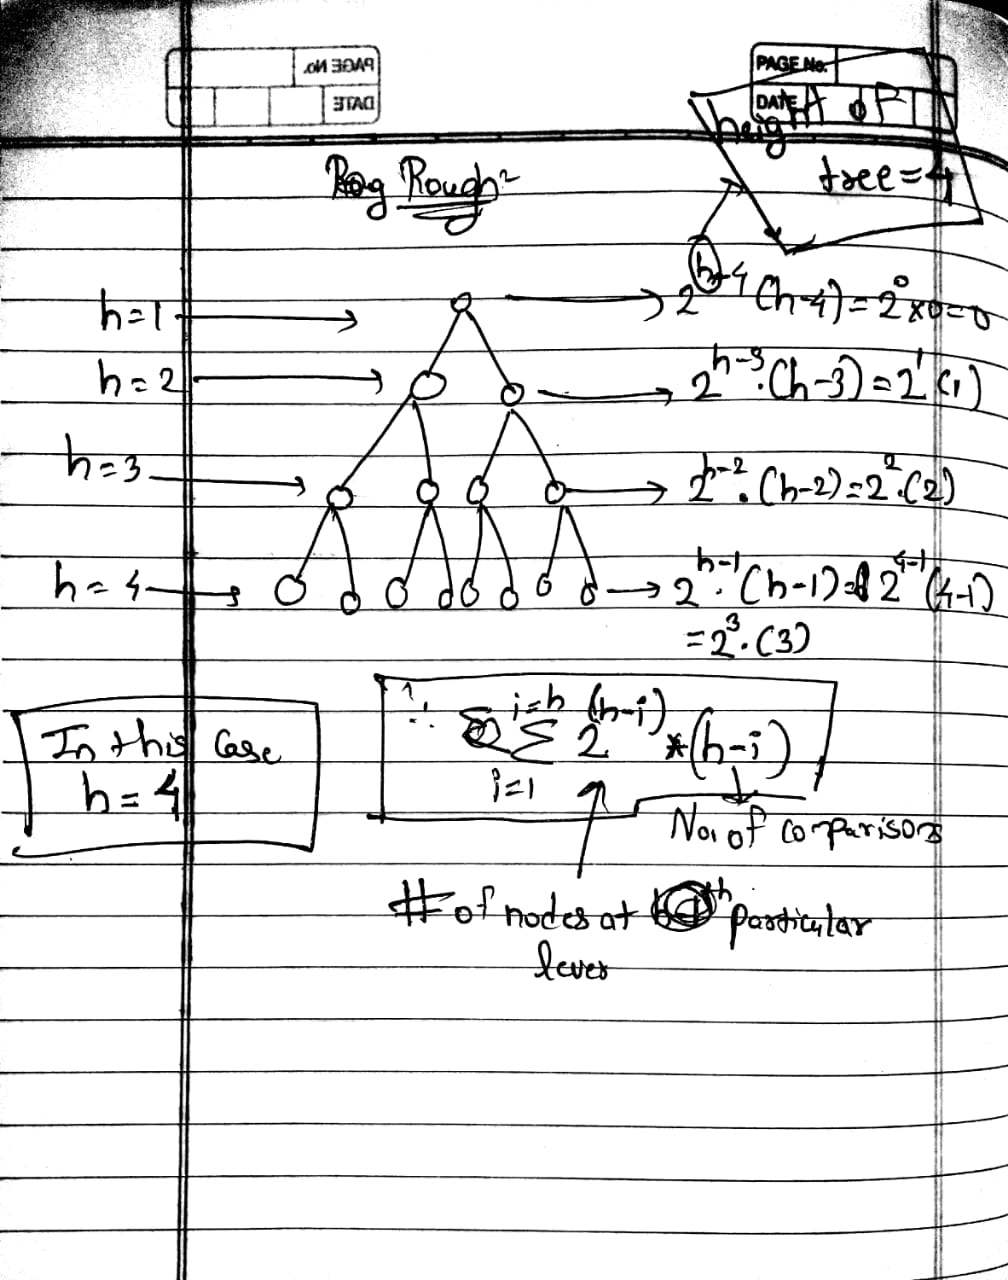 PAGE No.
DATE
PAGE No.
DATE
height of
tree = 4
Rough
h=1 → 2^{h-4} (h-4) = 2^0 x 0 = 0
h=2 → 2^{h-3}.(h-3) = 2^1 (1)
h=3 → 2^{h-2}.(h-2) = 2^2.(2)
h=4 → 2^{h-1}.(h-1) = 2^{4-1} (4-1)
= 2^3.(3)
In this Case
h = 4
∴ Σ_{i=1}^{i=h} 2^{(h-i)} * (h-i)
No. of comparisons
# of nodes at particular
level